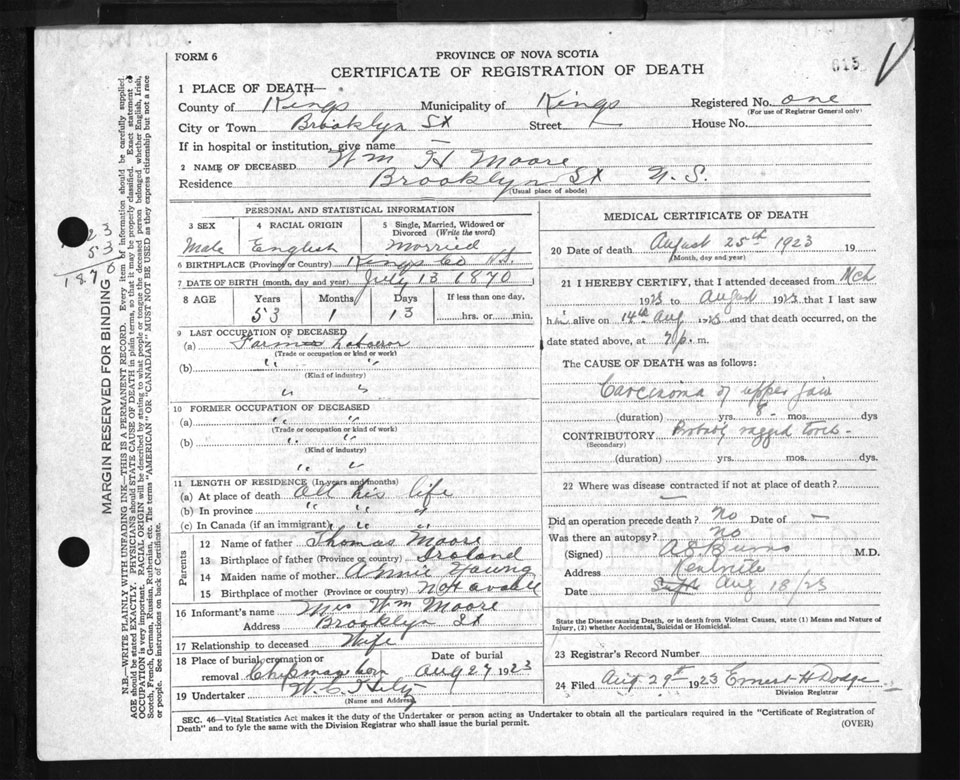 FORM 6
PROVINCE OF NOVA SCOTIA
CERTIFICATE OF REGISTRATION OF DEATH
615
1 PLACE OF DEATH—
County of Kings Municipality of Kings Registered No. one
(For use of Registrar General only)
City or Town Brooklyn St Street House No.
If in hospital or institution, give name —
2 NAME OF DECEASED Wm H Moore
Residence Brooklyn St N. S.
(Usual place of abode)
PERSONAL AND STATISTICAL INFORMATION
3 SEX 4 RACIAL ORIGIN 5 Single, Married, Widowed or Divorced (Write the word)
Male English Married
6 BIRTHPLACE (Province or Country) Kings Co N.S.
7 DATE OF BIRTH (month, day and year) July 13 1870
8 AGE Years Months Days If less than one day,
53 1 13 hrs. or min.
9 LAST OCCUPATION OF DECEASED
(a) Farm
(Trade or occupation or kind or work)
(b) " "
(Kind of industry)
" "
10 FORMER OCCUPATION OF DECEASED
(a) " "
(Trade or occupation or kind of work)
(b) " "
(Kind of industry)
" "
11 LENGTH OF RESIDENCE (In years and months)
(a) At place of death All his life
(b) In province " " "
(c) In Canada (if an immigrant) " " "
Parents
12 Name of father Thomas Moore
13 Birthplace of father (Province or country) Ireland
14 Maiden name of mother Annie Young
15 Birthplace of mother (Province or country) Not
16 Informant's name Mrs Wm Moore
Address Brooklyn St
17 Relationship to deceased Wife
18 Place of burial, cremation or removal Date of burial
Aug 27 1923
19 Undertaker
(Name and Address)
MEDICAL CERTIFICATE OF DEATH
20 Date of death August 25th 1923 19
(Month, day and year)
21 I HEREBY CERTIFY, that I attended deceased from Mch
1923 to August 1923 that I last saw
him alive on 14th Aug 1923 and that death occurred, on the
date stated above, at 7 p. m.
The CAUSE OF DEATH was as follows:
Carcinoma of upper jaw
(duration) yrs. 8 mos. dys
CONTRIBUTORY ragged
(Secondary)
(duration) yrs. mos. dys.
22 Where was disease contracted if not at place of death?
—
Did an operation precede death? No Date of —
Was there an autopsy? No
(Signed) A.E. Burns M.D.
Address
Date Aug 18/23
State the Disease causing Death, or in death from Violent Causes, state (1) Means and Nature of
Injury, (2) whether Accidental, Suicidal or Homicidal.
23 Registrar's Record Number
24 Filed Aug 29th 1923 Ernest H Dodge
Division Registrar
SEC. 46—Vital Statistics Act makes it the duty of the Undertaker or person acting as Undertaker to obtain all the particulars required in the "Certificate of Registration of
Death" and to fyle the same with the Division Registrar who shall issue the burial permit.
(OVER)
MARGIN RESERVED FOR BINDING
N.B.—WRITE PLAINLY WITH UNFADING INK—THIS IS A PERMANENT RECORD. Every item of information should be carefully supplied.
AGE should be stated EXACTLY. PHYSICIANS should STATE CAUSE OF DEATH in plain terms, so that it may be properly classified. Exact statement of
OCCUPATION is very important. RACIAL ORIGIN will be described by stating to what people or tongue the deceased person belonged, whether English, Irish,
Scotch, French, German, Russian, Ruthenian, etc. The terms "AMERICAN" OR "CANADIAN" MUST NOT BE USED as they express citizenship but not a race
or people. See instructions on back of Certificate.
23
53
1870